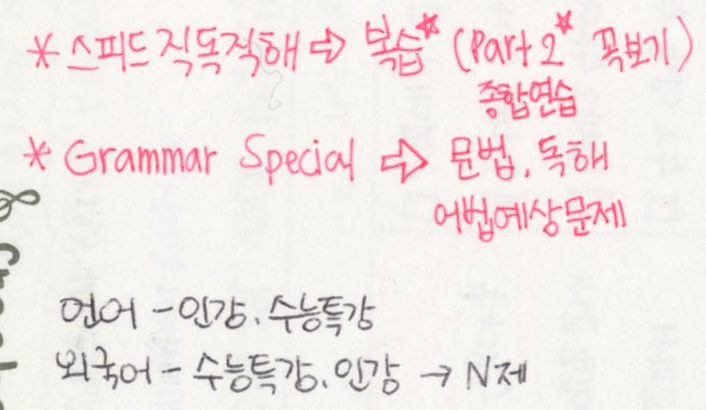 * 스피드 직독직해 ⇨ 복습* (Part 2* 꼭보기)
종합연습
* Grammar Special ⇨ 문법, 독해
어법예상문제
언어 - 인강, 수능특강
외국어 - 수능특강, 인강 → N제